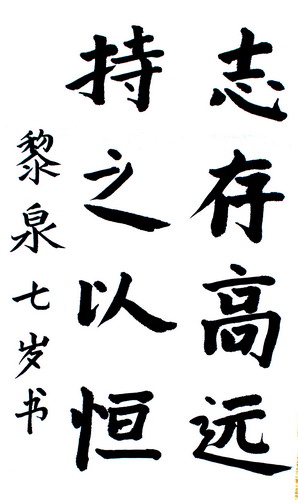 志存高远
持之以恒
黎泉七岁书